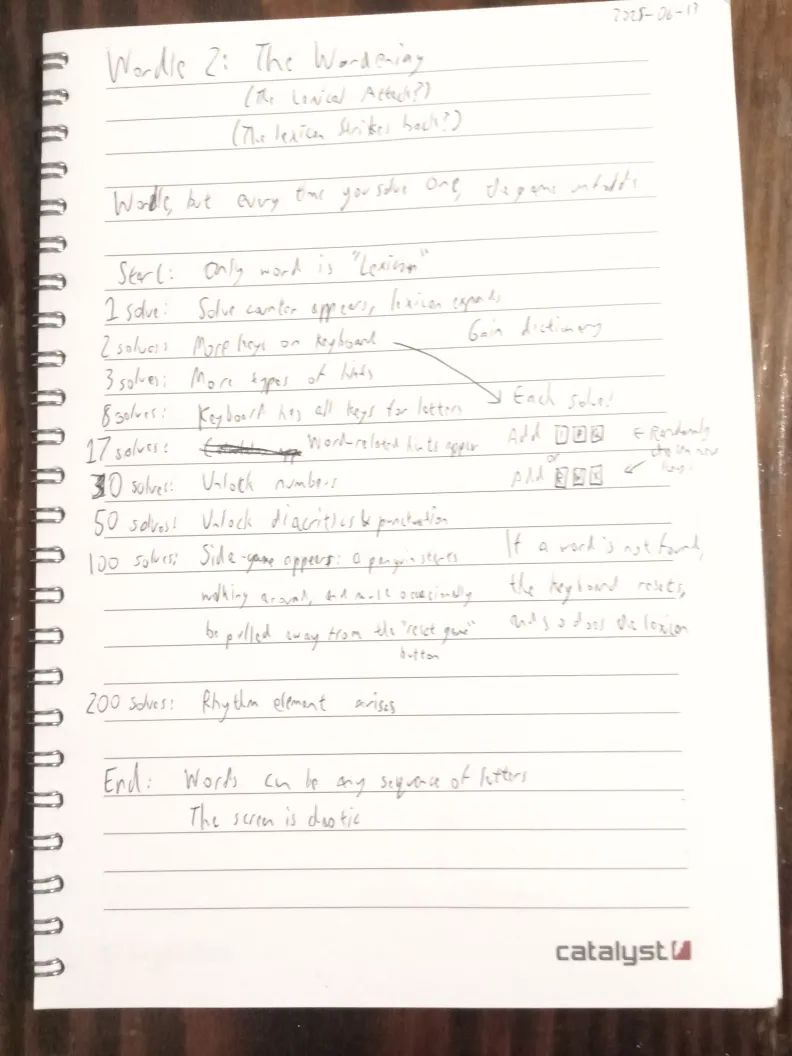 2025-06-17
Wordle 2: The Wordening
(The Lexical Attack?)
(The lexicon Strikes back?)
Wordle, but every time you solve one, the game unfolds
Start: Only word is "Lexicon"
1 solve: Solve counter appears, lexicon expands
2 solves: More keys on keyboard
Gain dictionary
3 solves: More types of hints
Each solve:
8 solves: Keyboard has all keys for letters
17 solves: Word-related hints appear
Add
← Randomly
chosen new
keys
or
Add
30 solves: Unlock numbers
50 solves: Unlock diacritics & punctuation
100 solves: Side-game appears: a penguin starts
walking around, and must occasionally
be pulled away from the "reset game"
button
If a word is not found,
the keyboard resets,
and so does the lexicon
200 solves: Rhythm element arises
End: Words can be any sequence of letters
The screen is chaotic
catalyst